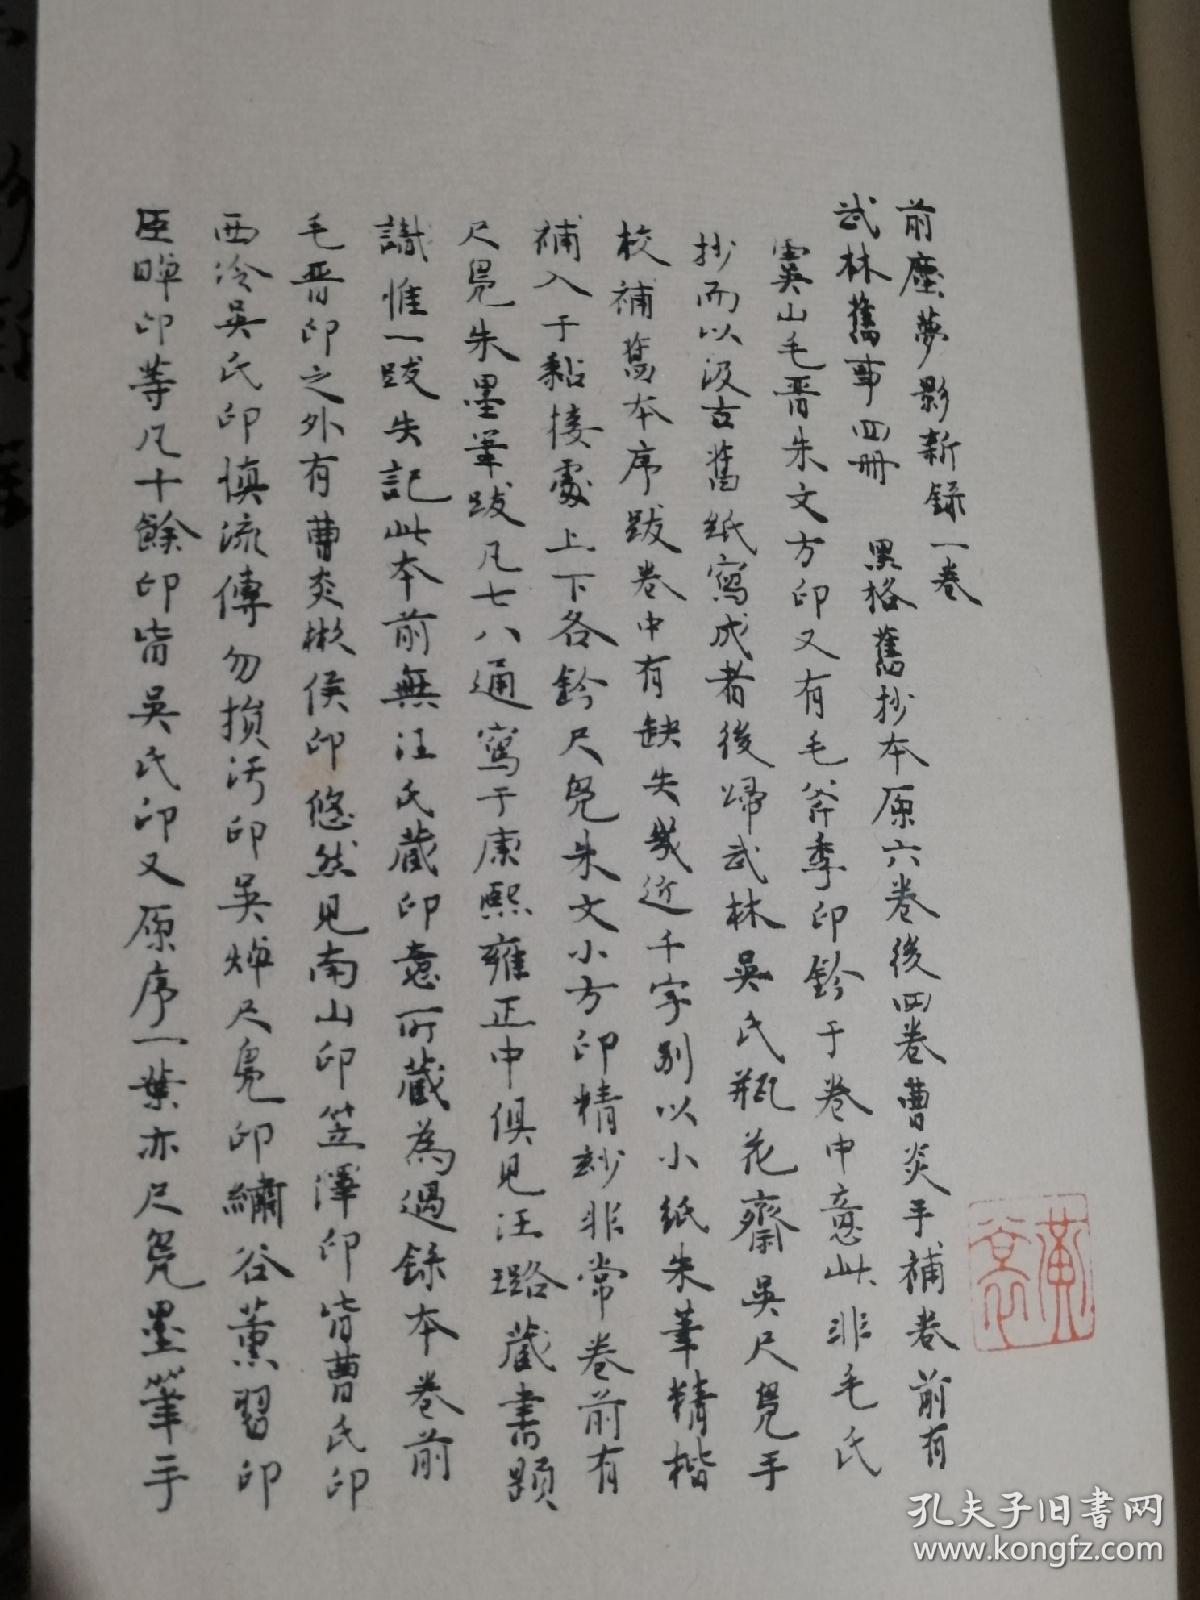 前塵夢影新錄一卷
武林舊事四冊　黑格舊抄本原六卷後四卷曹炎手補卷前有
虞山毛晋朱文方印又有毛斧季印鈐于卷中意此非毛氏
抄而以汲古舊紙寫成者後歸武林吳氏瓶花齋吳尺鳧手
校補舊本序跋卷中有缺失幾近千字别以小紙朱筆精楷
補入于黏接處上下各鈐尺鳧朱文小方印精妙非常卷前有
尺鳧朱墨筆跋凡七八通寫于康熙雍正中俱見汪璐藏書題
識惟一跋失記此本前無汪氏藏印意所藏為過録本卷前
毛晋印之外有曹炎印彬侯印悠然見南山印笠澤印皆曹氏印
西泠吳氏印慎流傳勿損污印吳焯尺鳧印繡谷薰習印
臣焯印等凡十餘印皆吳氏印又原序一葉亦尺鳧墨筆手
黄裳
孔夫子旧书网
www.kongfz.com